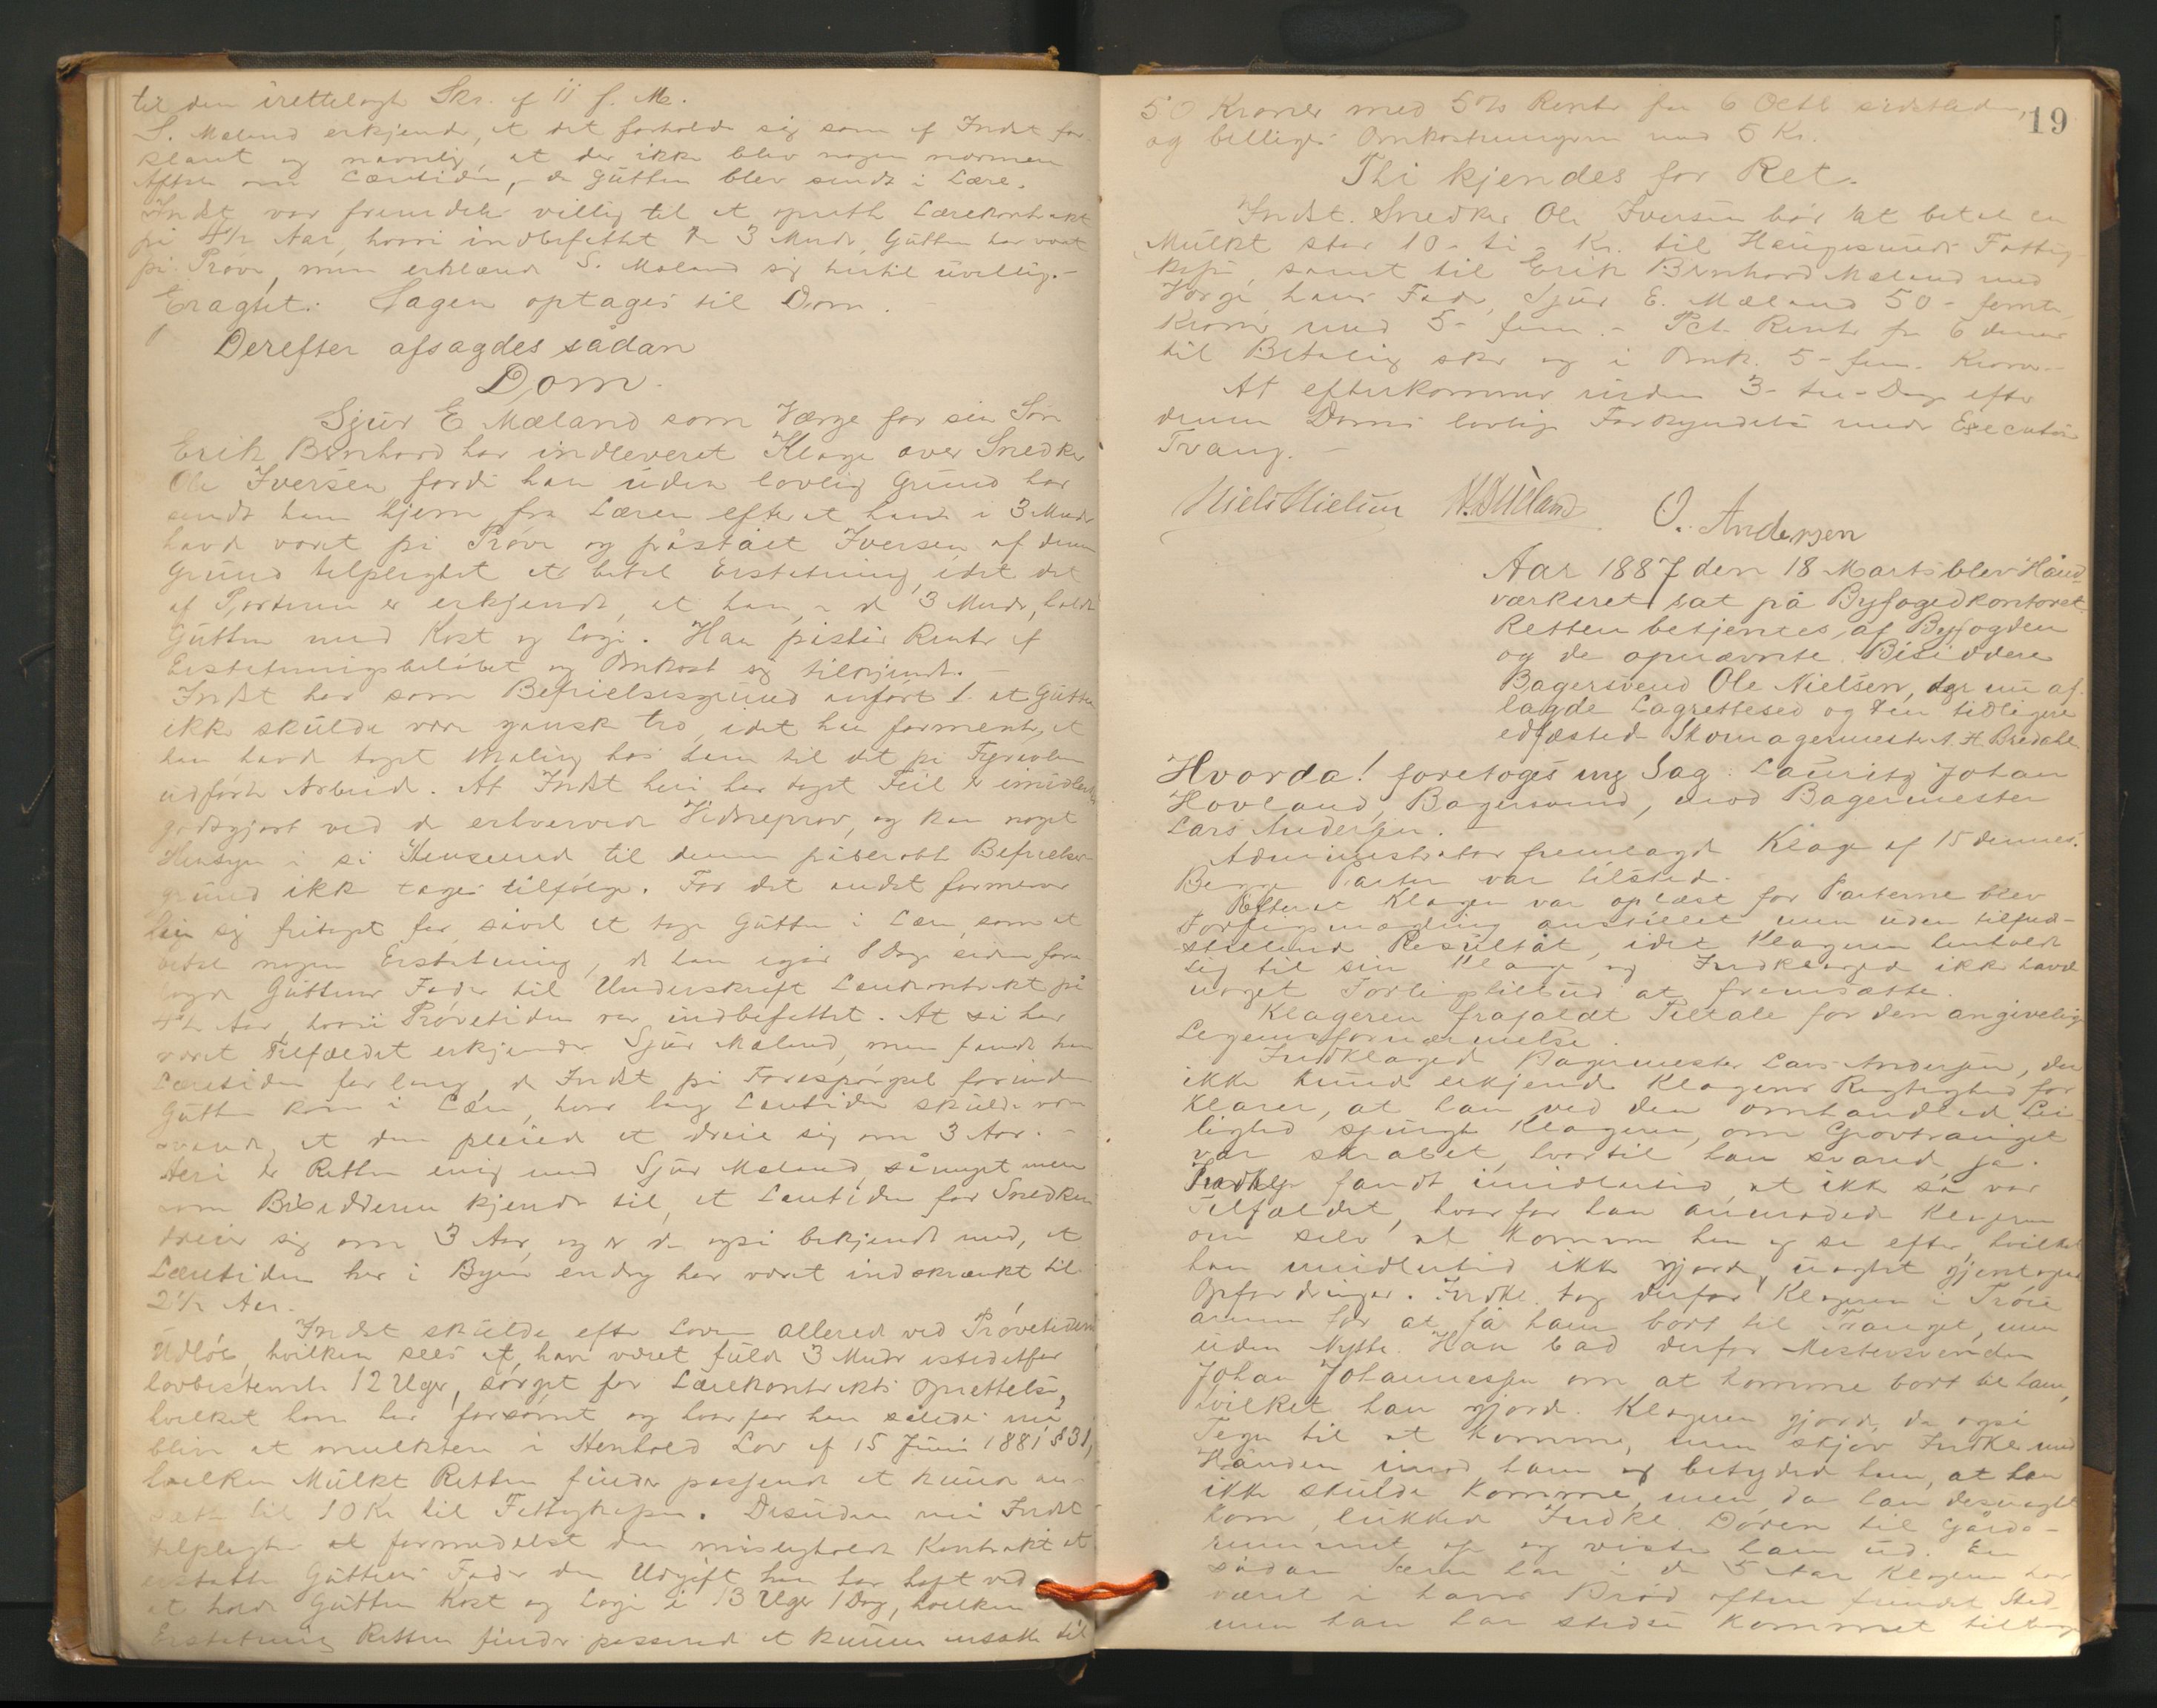 til den irettelagte Skr. af 11 f. M.
S. Mæland erkjender, at det forholder sig som af Indst for-
klaret og navnlig, at der ikke blev nogen nærmere
Aftale om Læretiden, da Gutten blev sendt i Lære.
Indst var fremdeles villig til at oprette Lærekontrakt
på 4½ Aar, hvori indbefattet de 3 Mndr. Gutten har været
på Prøve, men erklærede S. Mæland sig hertil uvillig.-
Eragtet: Sagen optages til Dom.
Derefter afsagdes sådan
Dom.
Sjur E Mæland som Værge for sin Søn
Erik Bernhard har indleveret Klage over Snedker
Ole Iversen fordi han uden lovlig Grund har
sendt ham hjem fra Læren efterat have i 3 Mndr
havd været på Prøve og påstået Iversen af denne
Grund tilpligtet at betale Erstatning, idet det
af Parterne er erkjendt, at han i de 3 Mndr, holdt
Gutten med Kost og Logi. Han påstår Renter af
Erstatningsbeløbet og Omkost sig tilkjendt.-
Indst har som Befrielsesgrund anført 1. at Gutten
ikke skulde være ganske tro, idet han formente, at
han havde taget Maling hos ham til det på Fyrværelse
udførte Arbeide. At Indst heri har taget Feil er imidlertid
godtgjort ved de erhvervede Vidneprov, og kan noget
Hensyn i så Henseende til denne påberåbte Befrielses-
grund ikke tages tilfølge. For det andet formener
han sig fritaget for såvel at tage Gutten i Lære, som at
betale nogen Erstatning, da han igår 8 Dage siden fore-
lagde Guttens Fader til Underskrift Lærekontrakt på
4½ Aar, hvori Prøvetiden var indbefattet. At så har
været Tilfældet erkjender Sjur Mæland, men fandt han
Læretiden for lang, da Indst på Forespørgsel forinden
Gutten kom i Lære, hvor lang Læretiden skulde være
svarede, at den pleiede at dreie sig om 3 Aar.-
Heri er Retten enig med Sjur Mæland, såmeget mere
som Bisidderne kjender til, at Læretiden for Snedkere
dreier sig om 3 Aar, og er de også bekjendt med, at
Læretiden her i Byen endog har været indskrænket til
2½ Aar.
Indst skulde efter Loven allerede ved Prøvetidens
Udløb, hvilken sees at have været fulde 3 Mndr istedetfor
lovbestemte 12 Uger, sørget for Lærekontrakts Oprettelse,
hvilket han har forsømt og hvorfor han således må
blive at mulktere i Henhold Lov af 15 Juni 1881 § 31,
hvilken Mulkt Retten finder passende at kunne an-
sætte til 10 Kr til Fattigkassen. Desuden må Indst
tilpligtes at formedelst den misligholdte Kontrakt at
erstatte Guttens Fader den Udgift han har havt ved
at holde Gutten Kost og Logi i 13 Uger 1 Dag, hvilken
Erstatning Retten finder passende at kunne ansætte til
19
50 Kroner med 5% Rente fra 6 Octb sidstleden,
og billiges Omkostningerne med 5 Kr.
Thi kjendes for Ret.
Indst. Snedker Ole Iversen bør at betale en
Mulkt stor 10 - ti - Kr. til Haugesunds Fattig-
kasse, samt til Erik Bernhard Mæland med
Værge hans Fader, Sjur E. Mæland 50 - femti
Kroner med 5 - fem - Pct. Rente fra 6
til Betaling sker og i Omk. 5 - fem - Kroner.-
At efterkommes inden 3 - tre - Dage efter
denne Doms lovlige Forkyndelse under Execution
Tvang.-
Niels Nielsen O. Andersen
Aar 1887 den 18 Marts blev Hånd-
værksret sat på Byfogedkontoret
Retten betjentes af Byfogden
og de opnævnte Bisiddere
Bagersvend Ole Nielsen, der nu af-
lagde Lagrettesed og den tidligere
edfæsted Skomagermester A. H. Bredahl.
Hvorda! foretoges ny Sag: Lauritz Johan
Hovland, Bagersvend, mod Bagermester
Lars Andersen.-
Administrator fremlagde Klage af 15 dennes.
Begge Parter var tilstede.
Efterat Klagen var oplæst for Parterne blev
Forligsmægling anstillet men uden tilfreds-
stillende Resultat, idet Klageren henholdt
sig til sin Klage og Indklagede ikke havde
noget Forligstilbud at fremsætte.
Klageren frafaldt Tiltale for den angivelige
Legemsfornærmelse.
Indklagede Bagermester Lars Andersen, der
ikke kunde erkjende Klagens Rigtighed for-
klarer, at han ved den omhandlede Lei-
lighed spurgte Klageren, om Grovtrauget
var skrabet, hvortil han svarede ja.
Indkl. fandt imidlertid, at ikke så var
Tilfældet, hvorfor han anmodede Klageren
om selv at komme hen og se efter, hvilket
han imidlertid ikke gjorde, uagtet gjentagne
Opfordringer. Indkl. tog derfor Klageren i Trøie
ærmen for at få ham bort til Trauget, men
uden Nytte. Han bad derfor Mestersvenden
Johan Johannessen om at komme bort til ham,
hvilket han gjorde. Klageren gjorde da også
Tegn til at komme, men skjøv Indkl med
Hånden imod ham og betydede ham, at han
ikke skulde komme, men da han desuagtet
kom, lukkede Indkl. Døren til Gårds-
rummet op og viste ham ud. En
sådan Scene har i de 5 Aar Klageren har
været i hans Brød oftere fundet Sted,
men han har stedse kommet tilbage